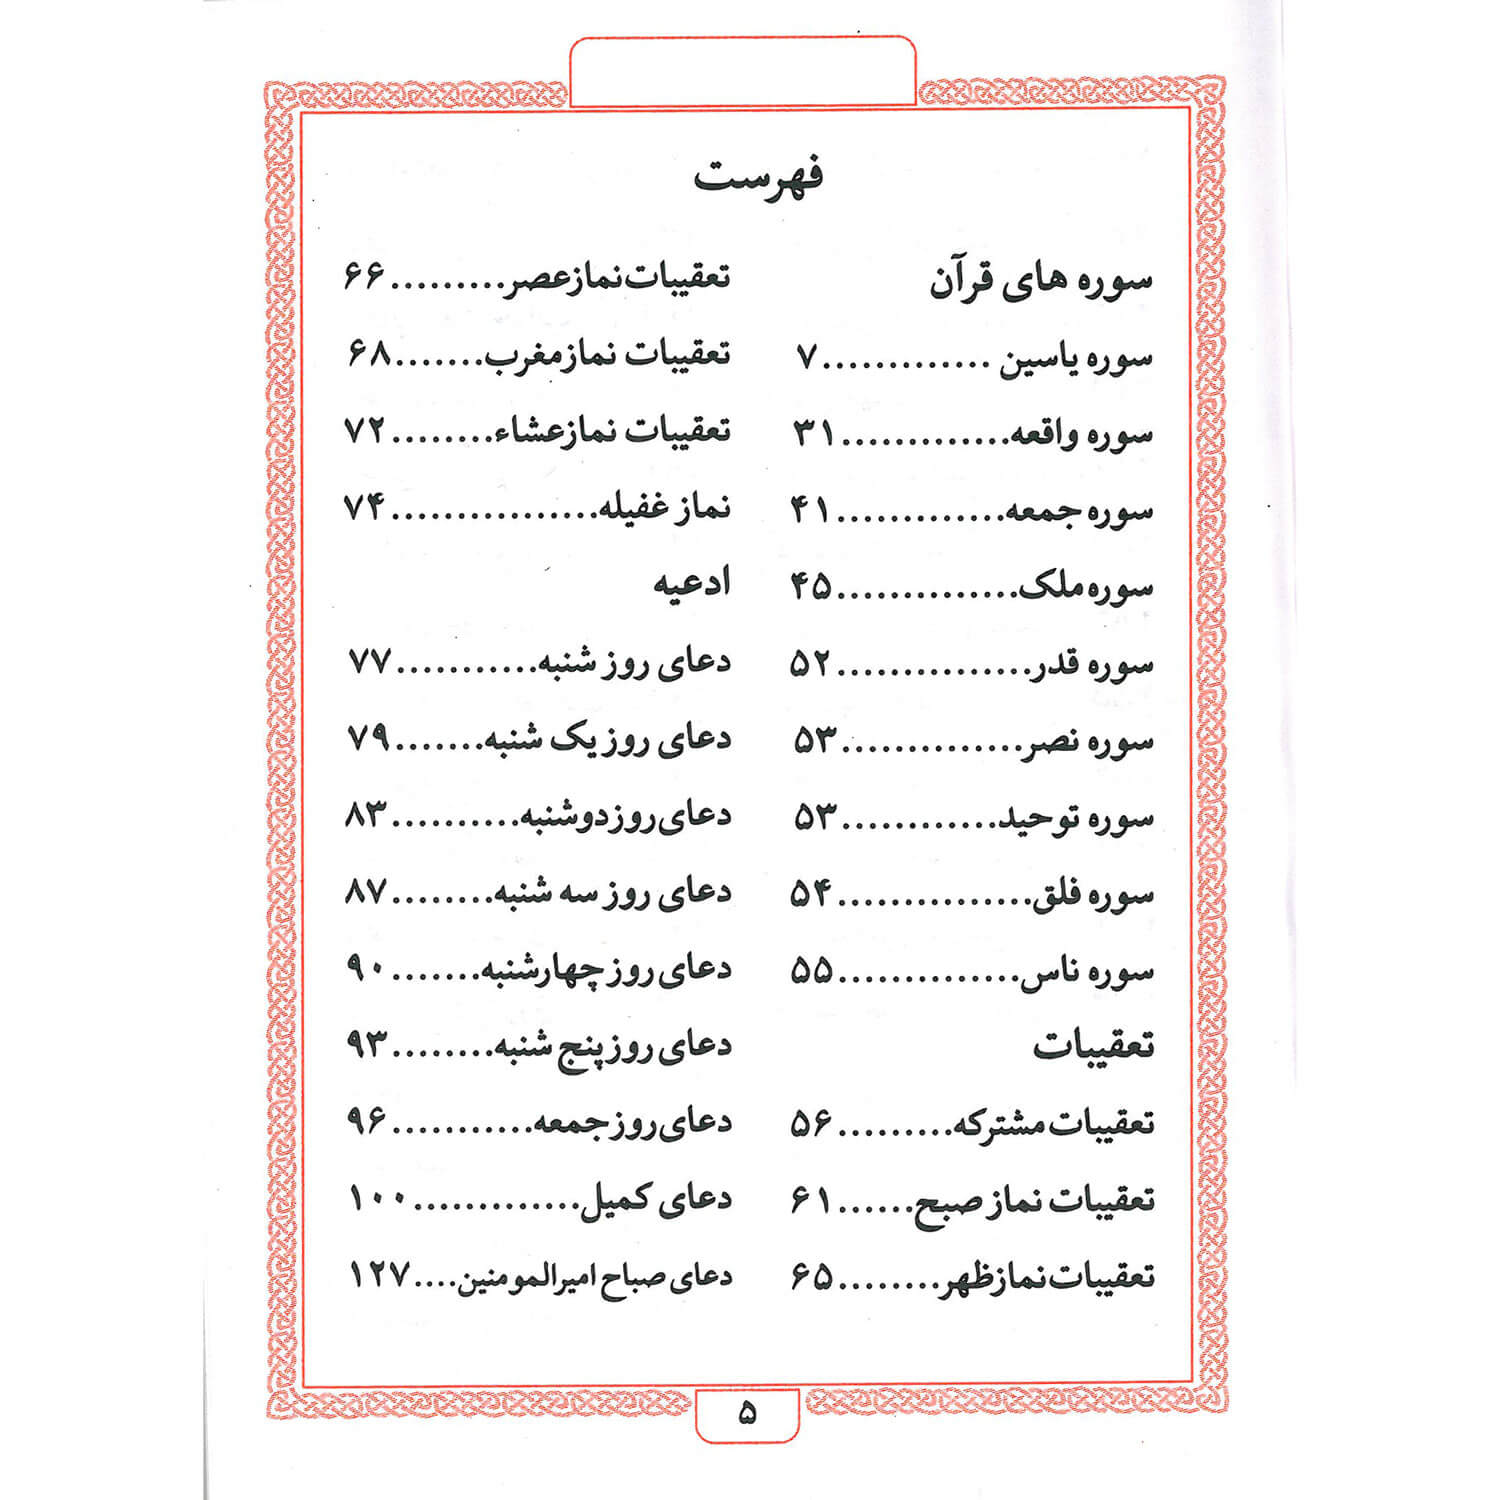 فهرست
سوره های قرآن
سوره یاسین .............۷
سوره واقعه.............۳۱
سوره جمعه.............۴۱
سوره ملک..............۴۵
سوره قدر...............۵۲
سوره نصر..............۵۳
سوره توحید............۵۳
سوره فلق...............۵۴
سوره ناس..............۵۵
تعقیبات
تعقیبات مشترکه.........۵۶
تعقیبات نماز صبح......۶۱
تعقیبات نماز ظهر........۶۵
تعقیبات نماز عصر.........۶۶
تعقیبات نماز مغرب.......۶۸
تعقیبات نماز عشاء........۷۲
نماز غفیله................۷۴
ادعیه
دعای روز شنبه...........۷۷
دعای روز یک شنبه.......۷۹
دعای روز دوشنبه..........۸۳
دعای روز سه شنبه........۸۷
دعای روز چهارشنبه.......۹۰
دعای روز پنج شنبه........۹۳
دعای روز جمعه...........۹۶
دعای کمیل.............۱۰۰
دعای صباح امیرالمومنین....۱۲۷
۵